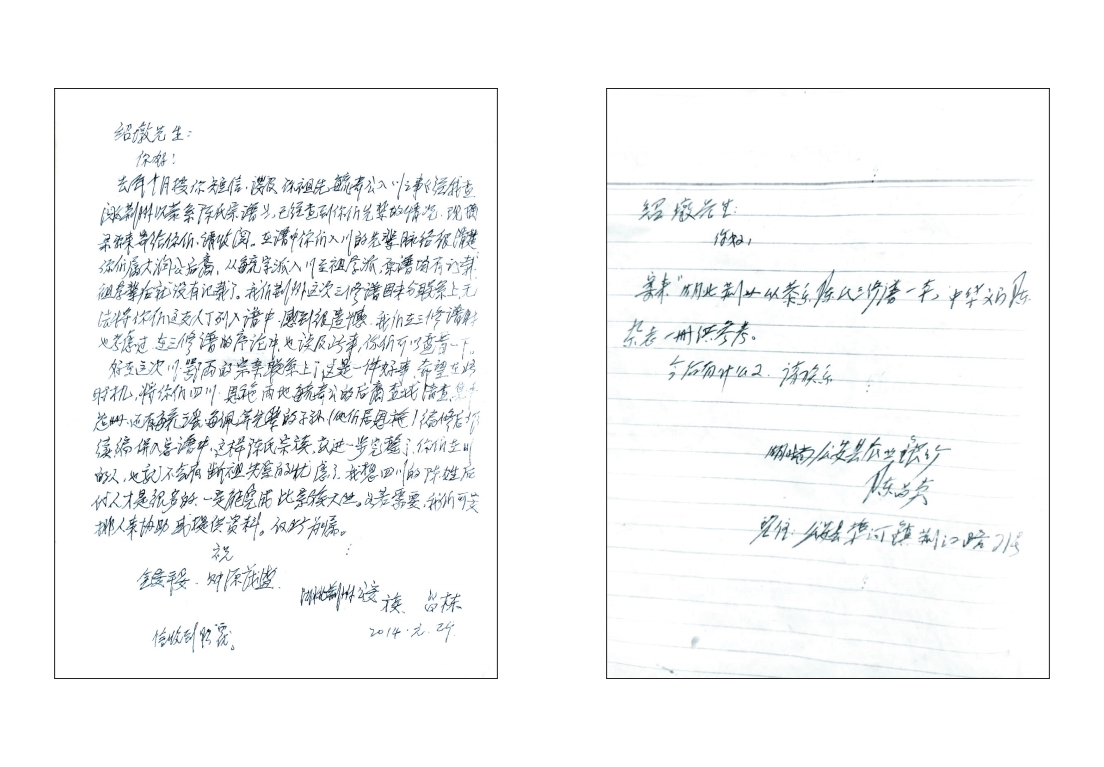 绍墩先生:
你好!
去年十月接你短信,谈及你祖先毓寿公入川之事,经我查
阅荆州以恭系陈氏宗谱,已经查到你们先辈的情况,现
寄给你们,请收阅。在谱中你们入川的先辈脉络很清楚
你们属大润公后裔,从毓字派入川至祖字派,宗谱均有记载
祖字辈后就没有记载了。我们荆州这次三修谱因未联系上,无
法将你们这支人丁列入谱中,感到很遗憾。我们在三修谱时
也考虑过,在三修谱的序论中,也谈及此事,你们可以查看一下。
好在这次川、鄂两的宗亲联系上了,这是一件好事,希望在
时机,将你们四川、恩施两地毓寿公的后裔查找清查,
还有毓 毓佩等先辈的子孙(他们居恩施)续修
续编入谱中,这样陈氏宗谱,就进一步完整了,你们在川
的人,也就不会有断祖失宗的忧虑了。我想四川的陈姓后
代人才是很多的,一定能完成此宗族大业。又若需要,我们可安
排人来协助或提供资料。仅此为属。
祝
全家平安、财源茂盛
湖北荆州公安 族 昌栋
2014.元.29
信收到 回
绍墩先生:
你好!
寄来"湖北荆州以恭系陈氏三修谱一本,中华义门陈
杂志一册供参考。
今后有什么 请联系
湖北 公安县
陈昌
现住:公安县 镇荆江路21号